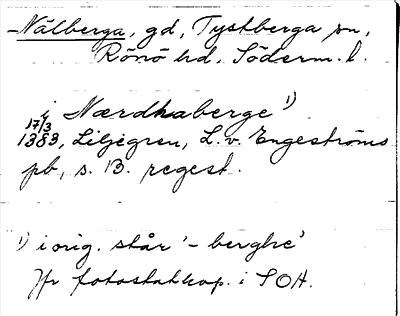 Nälberga, gd, Tystberga sn,
Rönö hd, Söderm. l.
i Nærdhaberge 1)
17/3
1383, Liljegren, L. v. Engeströms
pb, s. 13. regest.
1) i orig. står '-berghe'
Jfr fotostatkop. i SOA.